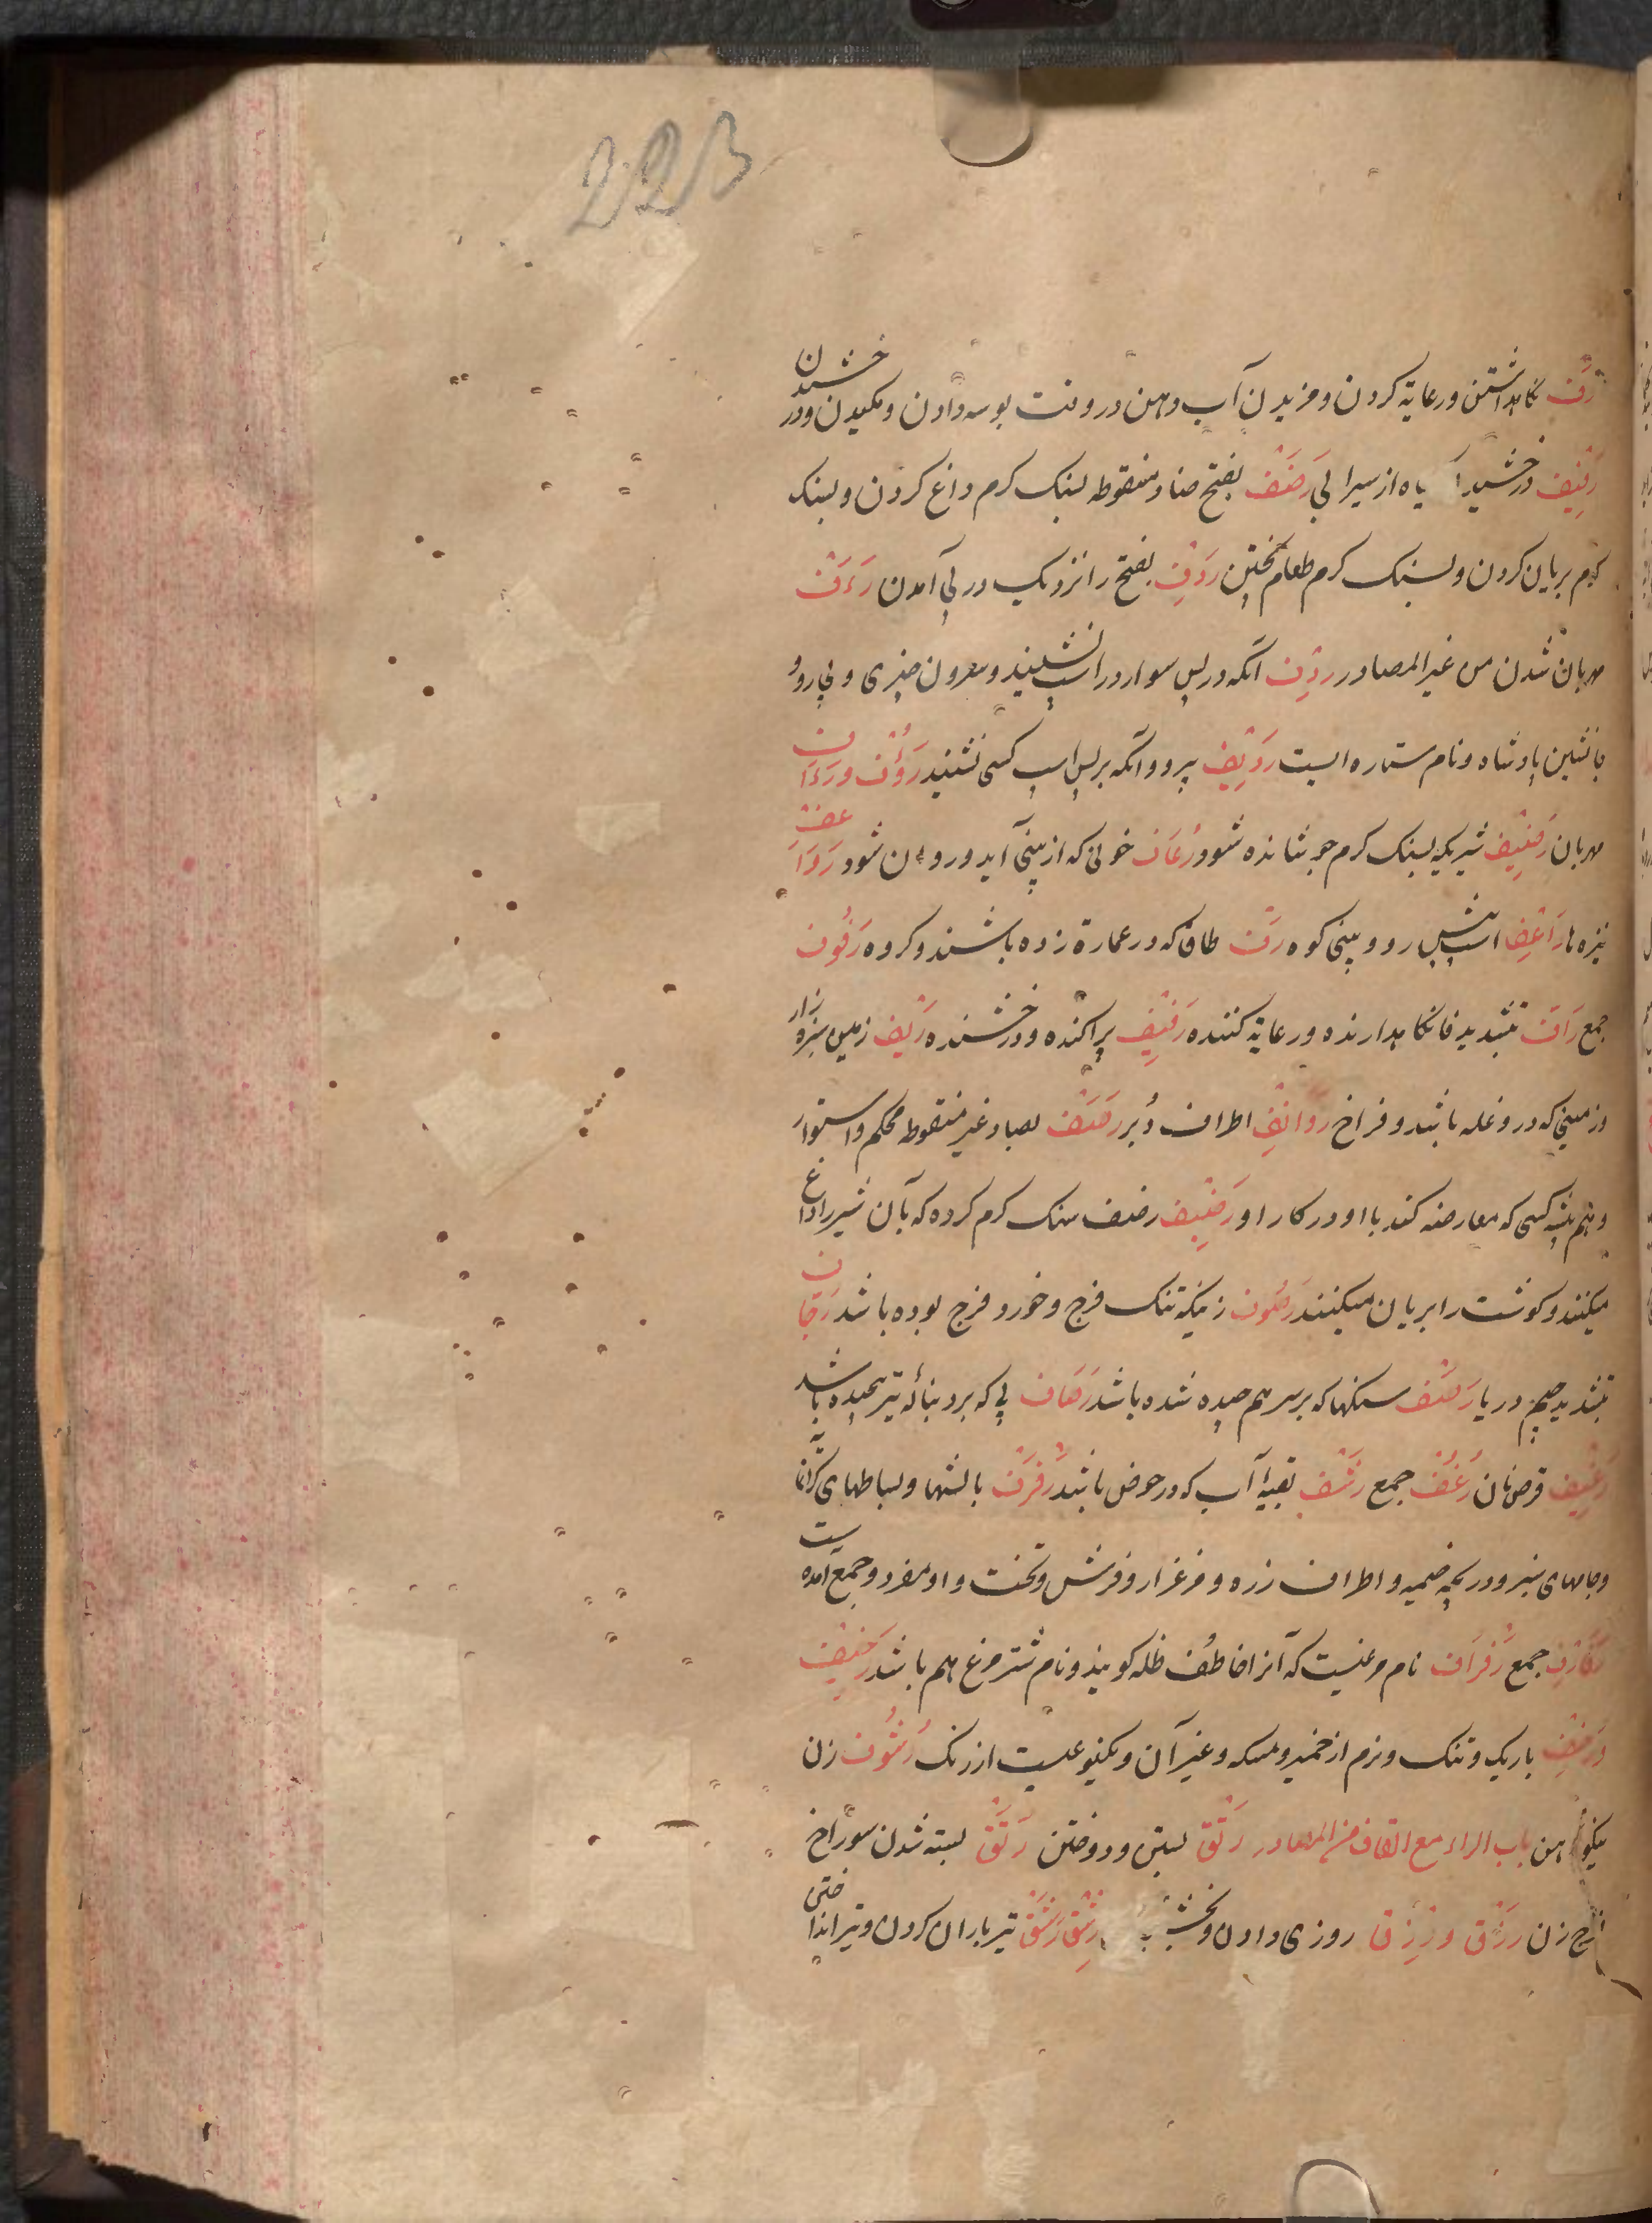 223
رَفّ نکاهداشتن ورعایة کردن ومزیدن آب دهن در وقت بوسه دادن ومکیدن ودرخشیدن
رَفِیْف درخشیدن یاه از سیرابی رَضْف بفتح ضاد منقوطه بسنک کرم داغ کردن وبسنک
کرم بریان کردن وبسنک کرم طعام پختن رَدْف بفتح را نزدیک در پی آمدن رَءَفَتْ
مهربان شدن من غیر المصادر رِدْف آنکه در پس سوار در اسپ نشیند وسرون چیزی وپی رو و
جانشین پادشاه ونام ستاره ایست رَدِیْف پیرو وآنکه بر پس اسپ کسی نشیند رَؤُف ورَءَاف
مهربان رَضِیْف شیریکه بسنک کرم جوشانده شود رُعَاف خونی که از بینی آید وروان شود رَوَاعِف
نیزه ها رَاعِف اسپ پیش رو وبینی کوه رَفّ طاق که در عمارة زده باشند وکروه رُفُوف
جمع رَافّ بتشدید فا نکاهدارنده ورعایة کننده رَفِیْف پراکنده ودرخشنده رِیْف زمین سبزه زار
وزمینی که درو غله باشد وفراخ رَوَانِف اطراف دُبر رَصْف بصاد غیر منقوطه محکم واستوار
وهم پیشه کسی که معارضه کند با او در کار او رَضِیْف رضف سنک کرم کرده که بآن شیر را داغ
میکنند وکوشت را بریان میکنند رَصُوف زنیکه تنک فرج وخورد فرج بوده باشد رَجَّاف
بتشدید جیم دریا رَصَف سنکها که بر سر هم چیده شده باشد رَصَاف پی که بر دنبالۀ تیر پیچیده باشد
رَغِیْف قرص نان رُغُف جمع رَشَف بقیۀ آب که در حوض باشد رَفْرَف بالشها وبساطهای کرانمایه
وجامهای سبز ودریچه خیمه واطراف زره ومرغزار وفرش وتخت واو مفرد وجمع آمده است
رَفَارِف جمع رَفْرَاف نام مرغیست که آنرا خاطف ظله کویند ونام شتر مرغ هم باشد رَخِیْف
وَرَخْف باریک وتنک ونرم از خمیر ومسکه وغیر آن ویکنوعیست از رنک رَشُوف زن
نیکو دهن باب الراء مع القاف من المصادر رَتْق بستن ودوختن رَتَق بسته شدن سوراخ
فرج زن رَزْق ورِزْق روزی دادن رِشْق رَشْق تیرباران کردن وتیر انداختن